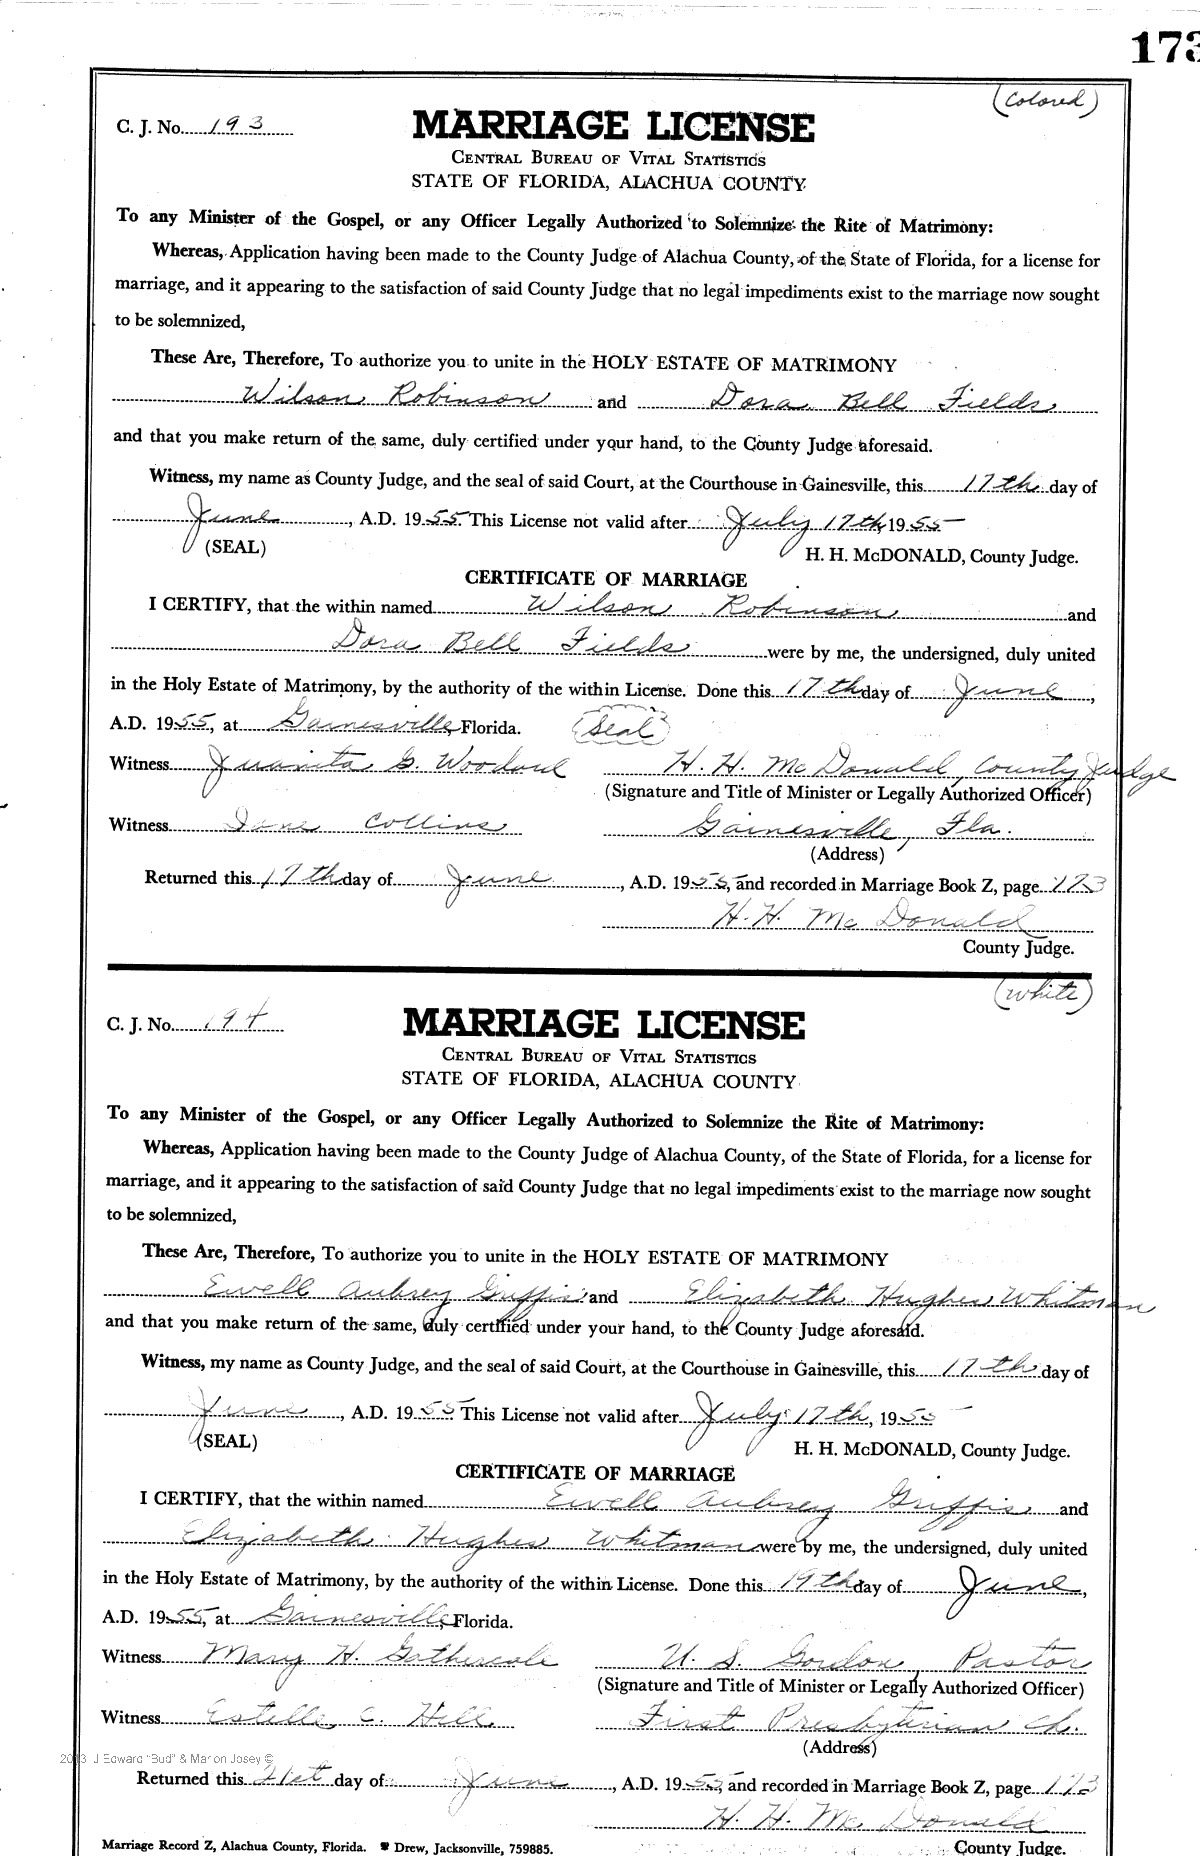 173
(Colored)
C. J. No. 193
MARRIAGE LICENSE
CENTRAL BUREAU OF VITAL STATISTICS
STATE OF FLORIDA, ALACHUA COUNTY
To any Minister of the Gospel, or any Officer Legally Authorized to Solemnize the Rite of Matrimony:
Whereas, Application having been made to the County Judge of Alachua County, of the State of Florida, for a license for
marriage, and it appearing to the satisfaction of said County Judge that no legal impediments exist to the marriage now sought
to be solemnized,
These Are, Therefore, To authorize you to unite in the HOLY ESTATE OF MATRIMONY
Wilson Robinson and Dora Bell Fields
and that you make return of the same, duly certified under your hand, to the County Judge aforesaid.
Witness, my name as County Judge, and the seal of said Court, at the Courthouse in Gainesville, this 17th day of
June, A.D. 1955. This License not valid after July 17th, 1955
(SEAL) H. H. McDONALD, County Judge.
CERTIFICATE OF MARRIAGE
I CERTIFY, that the within named Wilson Robinson and
Dora Bell Fields were by me, the undersigned, duly united
in the Holy Estate of Matrimony, by the authority of the within License. Done this 17th day of June,
A.D. 1955, at Gainesville, Florida. (Seal)
Witness Juanita G. Woodard H. H. McDonald, County Judge
(Signature and Title of Minister or Legally Authorized Officer)
Witness Jane Collins Gainesville, Fla.
(Address)
Returned this 17th day of June, A.D. 1955, and recorded in Marriage Book Z, page 173
H. H. McDonald
County Judge.
(White)
C. J. No. 194
MARRIAGE LICENSE
CENTRAL BUREAU OF VITAL STATISTICS
STATE OF FLORIDA, ALACHUA COUNTY
To any Minister of the Gospel, or any Officer Legally Authorized to Solemnize the Rite of Matrimony:
Whereas, Application having been made to the County Judge of Alachua County, of the State of Florida, for a license for
marriage, and it appearing to the satisfaction of said County Judge that no legal impediments exist to the marriage now sought
to be solemnized,
These Are, Therefore, To authorize you to unite in the HOLY ESTATE OF MATRIMONY
Ewell Aubrey Griffis and Elizabeth Hughes Whitman
and that you make return of the same, duly certified under your hand, to the County Judge aforesaid.
Witness, my name as County Judge, and the seal of said Court, at the Courthouse in Gainesville, this 17th day of
June, A.D. 1955. This License not valid after July 17th, 1955
(SEAL) H. H. McDONALD, County Judge.
CERTIFICATE OF MARRIAGE
I CERTIFY, that the within named Ewell Aubrey Griffis and
Elizabeth Hughes Whitman were by me, the undersigned, duly united
in the Holy Estate of Matrimony, by the authority of the within License. Done this 19th day of June,
A.D. 1955, at Gainesville, Florida.
Witness Mary H. Gathercole U. S. Gordon, Pastor
(Signature and Title of Minister or Legally Authorized Officer)
Witness Estelle C. Hill First Presbyterian Ch.
(Address)
2013 J Edward "Bud" & Marion Josey ©
Returned this 21st day of June, A.D. 1955, and recorded in Marriage Book Z, page 173
H. H. McDonald
County Judge.
Marriage Record Z, Alachua County, Florida. Drew, Jacksonville, 759885.